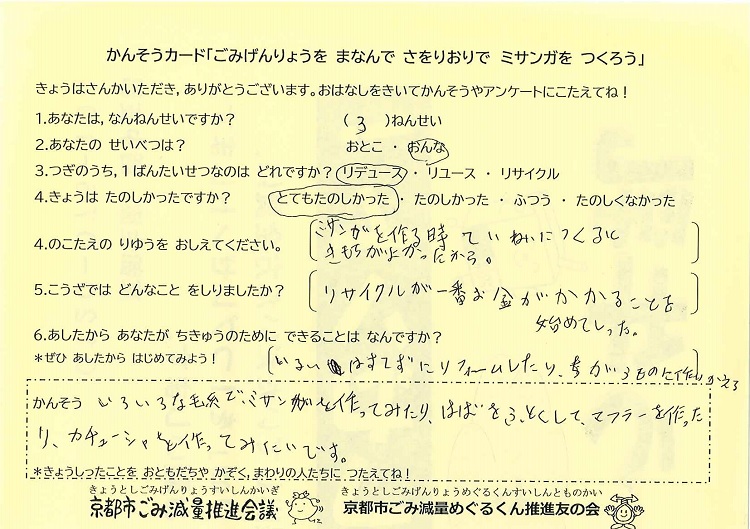 かんそうカード「ごみげんりょうを まなんで さをりおりで ミサンガを つくろう」
きょうはさんかいただき，ありがとうございます。おはなしをきいてかんそうやアンケートにこたえてね！
1.あなたは，なんねんせいですか？ （ 3 ）ねんせい
2.あなたの せいべつは？ おとこ ・ おんな
3.つぎのうち，1ばんたいせつなのは どれですか？ リデュース ・ リユース ・ リサイクル
4.きょうは たのしかったですか？ とてもたのしかった ・ たのしかった ・ ふつう ・ たのしくなかった
ミサンガを作る時ていねいにつくるに
4.のこたえの りゆうを おしえてください。
きもちがよかったから。
5.こうざでは どんなこと をしりましたか？ リサイクルが一番お金がかかることを
始めてしった。
6.あしたから あなたが ちきゅうのために できることは なんですか？
＊ぜひ あしたから はじめてみよう！ はすてずにリフォームしたり、ちがうものに作りかえる
かんそう いろいろな毛糸で、ミサンガを作ってみたり、はばをふとくして、マフラーを作った
り、カチューシャを作ってみたいです。
＊きょうしったことを おともだちや かぞく，まわりの人たちに つたえてね！
きょうとしごみげんりょうすいしんかいぎ きょうとしごみげんりょうめぐるくんすいしんとものかい
京都市ごみ減量推進会議 京都市ごみ減量めぐるくん推進友の会